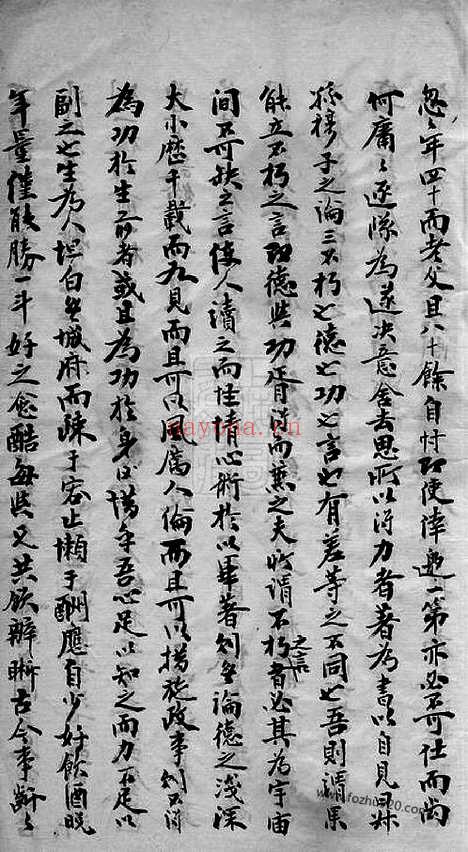 忽々年四十而老父且八十餘自忖即使倖邀一第亦必不可仕而尚
何庸々逐隊為遂決意舍去思所以得力者著為書以自見
孫穆子之論三不朽也德也功也言也有差等之不同也吾則謂果
能立不朽之言即德與功胥准而兼之夫所謂不朽之言者必其為宇宙
間不可缺之言使人讀之而性情心術於以畢著則無論德之淺深
大小歷千載而如見而且可以風厲人倫而且可以措施政事則不得
為功於生前者或且為功於身後惜乎吾心足以知之而力不足以
副之也生為人坦白無城府而疎于容止懶于酬應自少好飲酒晚
年量僅能勝一斗好之愈酷每與又共飲辨晰古今事齗々
nayona.com
www.fozhu920.com